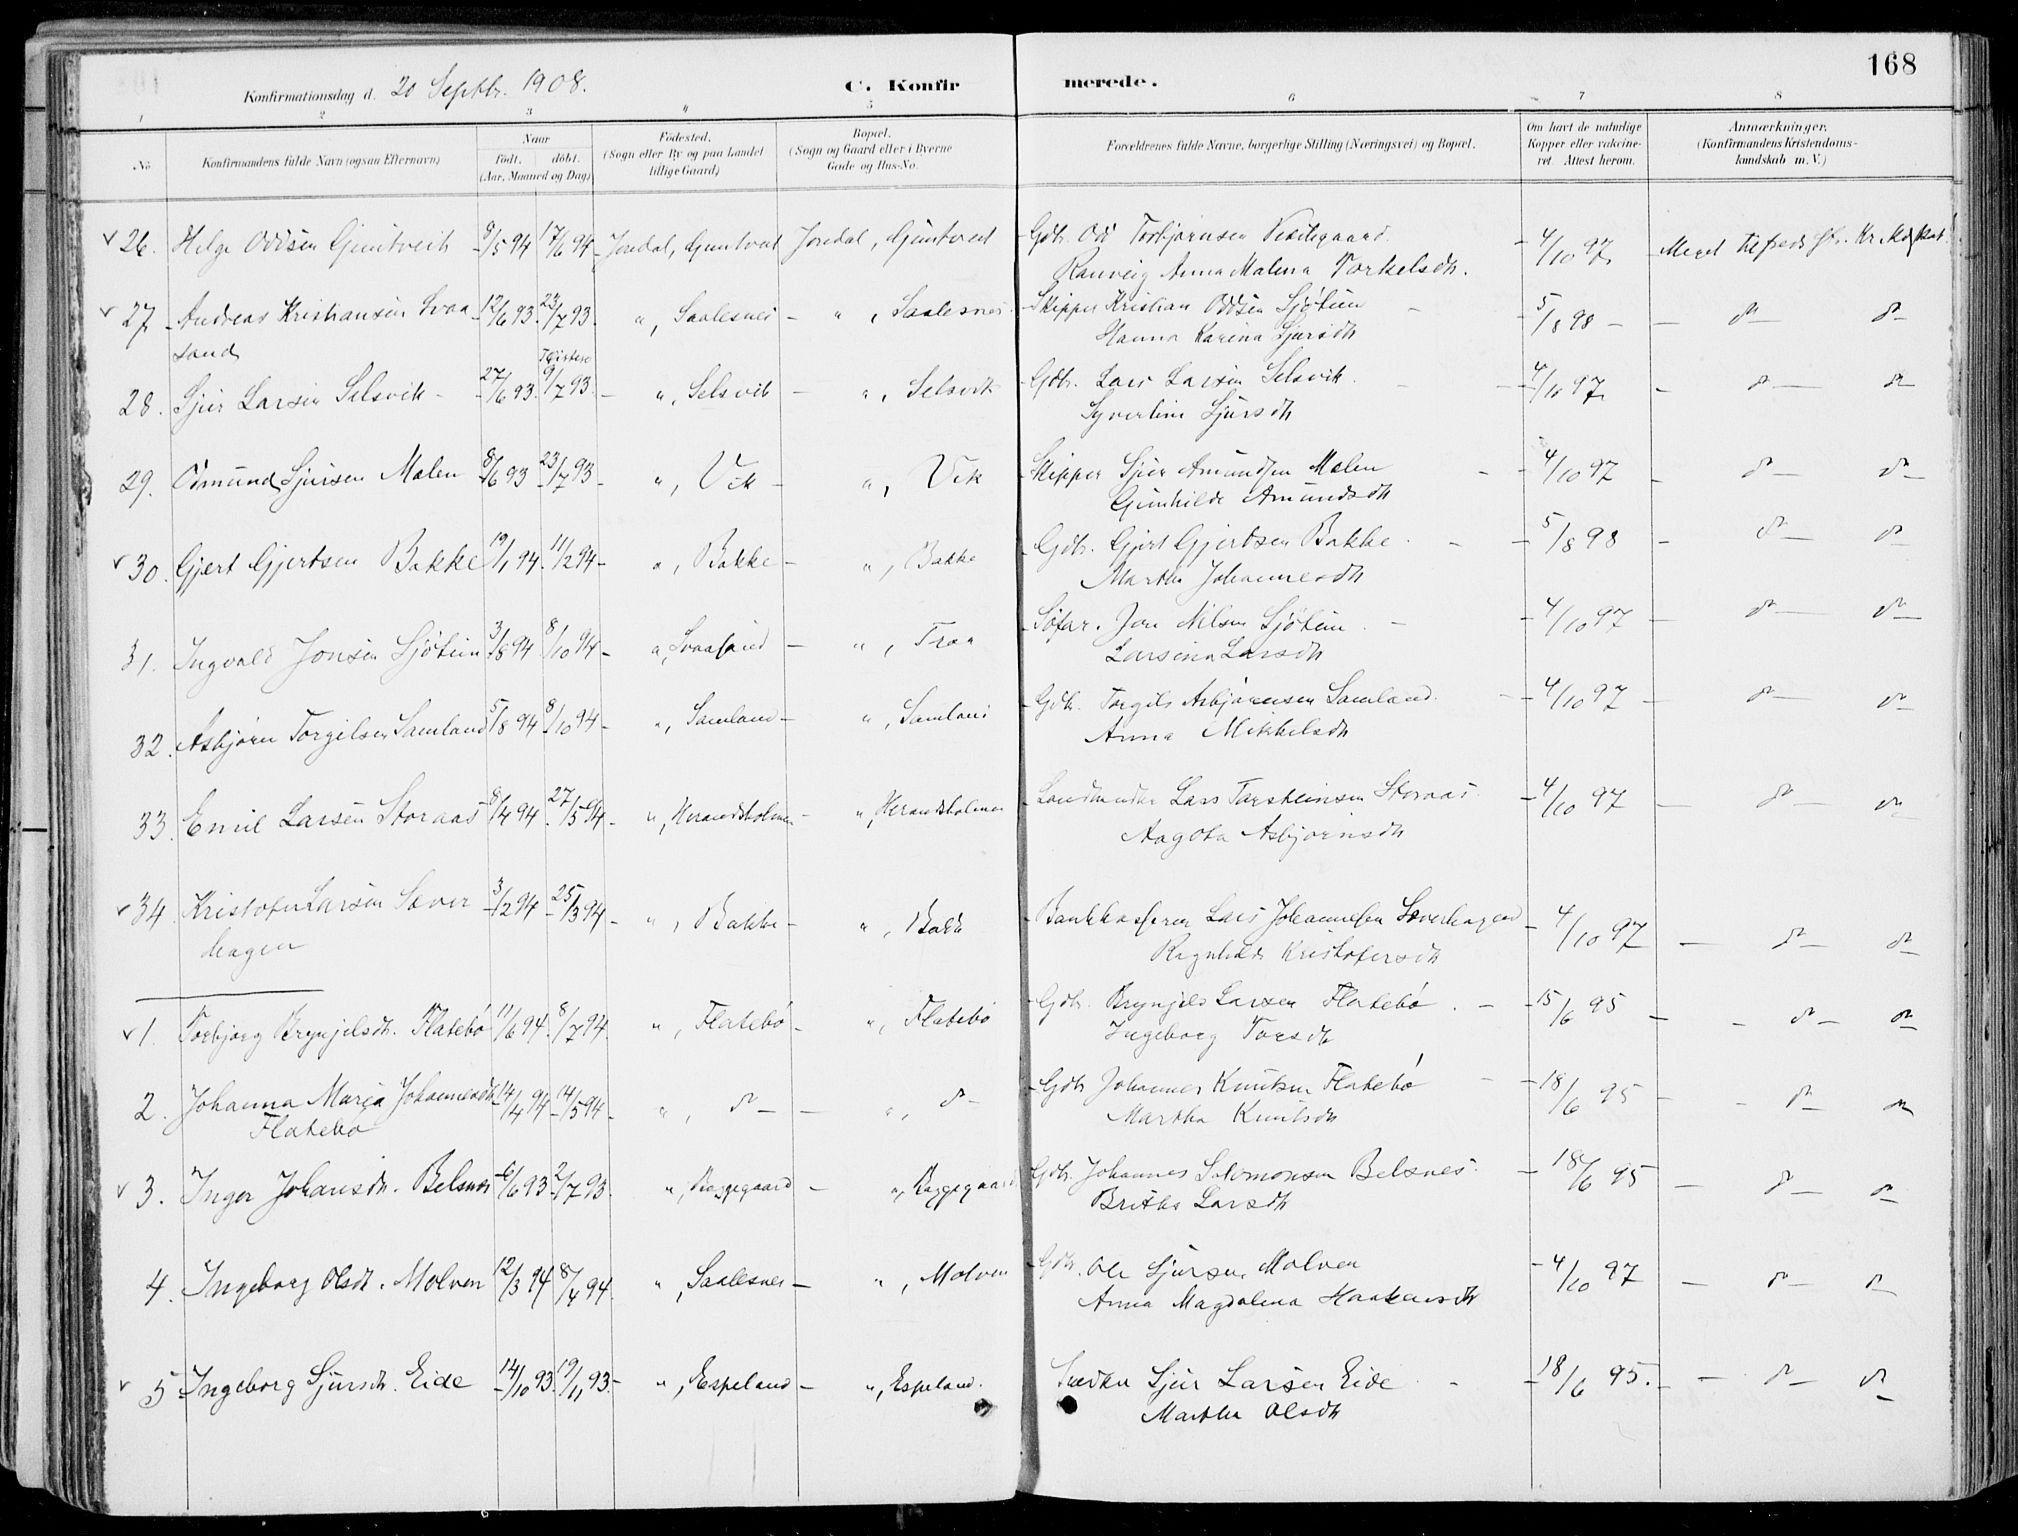 168
Konfirmationsdag d. 20 Septbr. 1908. C. Konfirmerede.
1 2 3 4 5 6 7 8
No
Konfirmandens fulde Navn (ogsaa Efternavn)
Naar
födt. döbt.
(Aar, Maaned og Dag)
Födested.
(Sogn eller By og paa Landet
tillige Gaard)
Bopæl.
(Sogn og Gaard eller i Byerne
Gade og Hus-No.
Forældrenes fulde Navne, borgerlige Stilling (Næringsvei) og Bopæl.
Om havt de naturlige
Kopper eller vakcine-
ret. Attest herom.
Anmærkninger.
(Konfirmandens Kristendoms-
kundskab m. V.)
26. Helge Oddsen Gjuntveit 9/5 94 17/6 94 Jondal, Gjuntveit Jondal, Gjuntveit Gdbr. Od Torbjørnsen 4/10 97 Meget tilfredsst.
Ranveig Anna Malena Torkelsdtr.
27 Andreas Kristiansen Svaa- 12/6 93 23/7 93 ", Saalesnes ", Saalesnes Skipper Kristian Oddsen Sjøtun 5/8 98 do do
sand Hanna Karina Sjursdtr
28. Sjur Larsen Selsvik 27/6 93 9/7 93 ", Selsvik ", Selsvik Gdbr. Lars Larsen Selsvik 4/10 97 do do
Syverline Sjursdtr
29. Odmund Sjursen Malen 8/6 93 23/7 93 ", Vik ", Vik Skipper Sjur Amundsen Malen 4/10 97 do do
Gunhilde Amundsdtr
30. Gjert Gjertsen Bakke 19/1 94 11/2 94 ", Bakke ", Bakke Gdbr. Gjert Gjertsen Bakke 5/8 98 do do
Martha Johannesdtr
31. Ingvald Jonsen Sjøtun 3/8 94 8/10 94 ", Svaasand ", Traa Søfar. Jon Nilsen Sjøtun 4/10 97 do do
Larsina Larsdtr
32. Asbjørn Torgilsen Samland 5/8 94 8/10 94 ", Samland ", Samland Gdbr. Torgils Asbjørnsen Samland 4/10 97 do do
Anna Mikkelsdtr
33. Emil Larsen Storaas 8/4 94 27/5 94 ", Herandsholmen ", Herandsholmen Landhandler Lars Torsteinsen Storaas 4/10 97 do do
Aagota Asbjørnsdtr
34. Kristofer Larsen Sæver 3/2 94 25/3 94 ", Bakke ", Bakke Bankkasserer Lars Johannessen Sæverhagen 4/10 97 do do
hagen Ragnhilde Kristofersdtr
1. Torbjørg Brynjelsdtr. Flatebø 11/6 94 8/7 94 ", Flatebø ", Flatebø Gdbr. Brynjels Larsen Flatebø 15/6 95 do do
Ingeborg Torsdtr
2. Johanna Maria Johannesdtr 14/4 94 14/5 94 ", do ", do Gdbr Johannes Knutsen Flatebø 18/6 95 do do
Flatebø Martha Knutsdtr
3. Inger Johansdtr. Belsnes 6/6 93 2/7 93 ", Kaggegaard ", Kaggegaard Gdbr. Johannes Salomonsen Belsnes 18/6 95 do do
Britha Larsdtr
4. Ingeborg Olsdtr. Molven 12/3 94 8/4 94 ", Saalesnes ", Molven Gdbr. Ole Sjursen Molven 4/10 97 do do
Anna Magdalena Haakensdtr
5 Ingeborg Sjursdtr. Eide 14/10 93 19/11 93 ", Espeland ", Espeland. Snedker Sjur Larsen Eide 18/6 95. do do
Martha Olsdtr